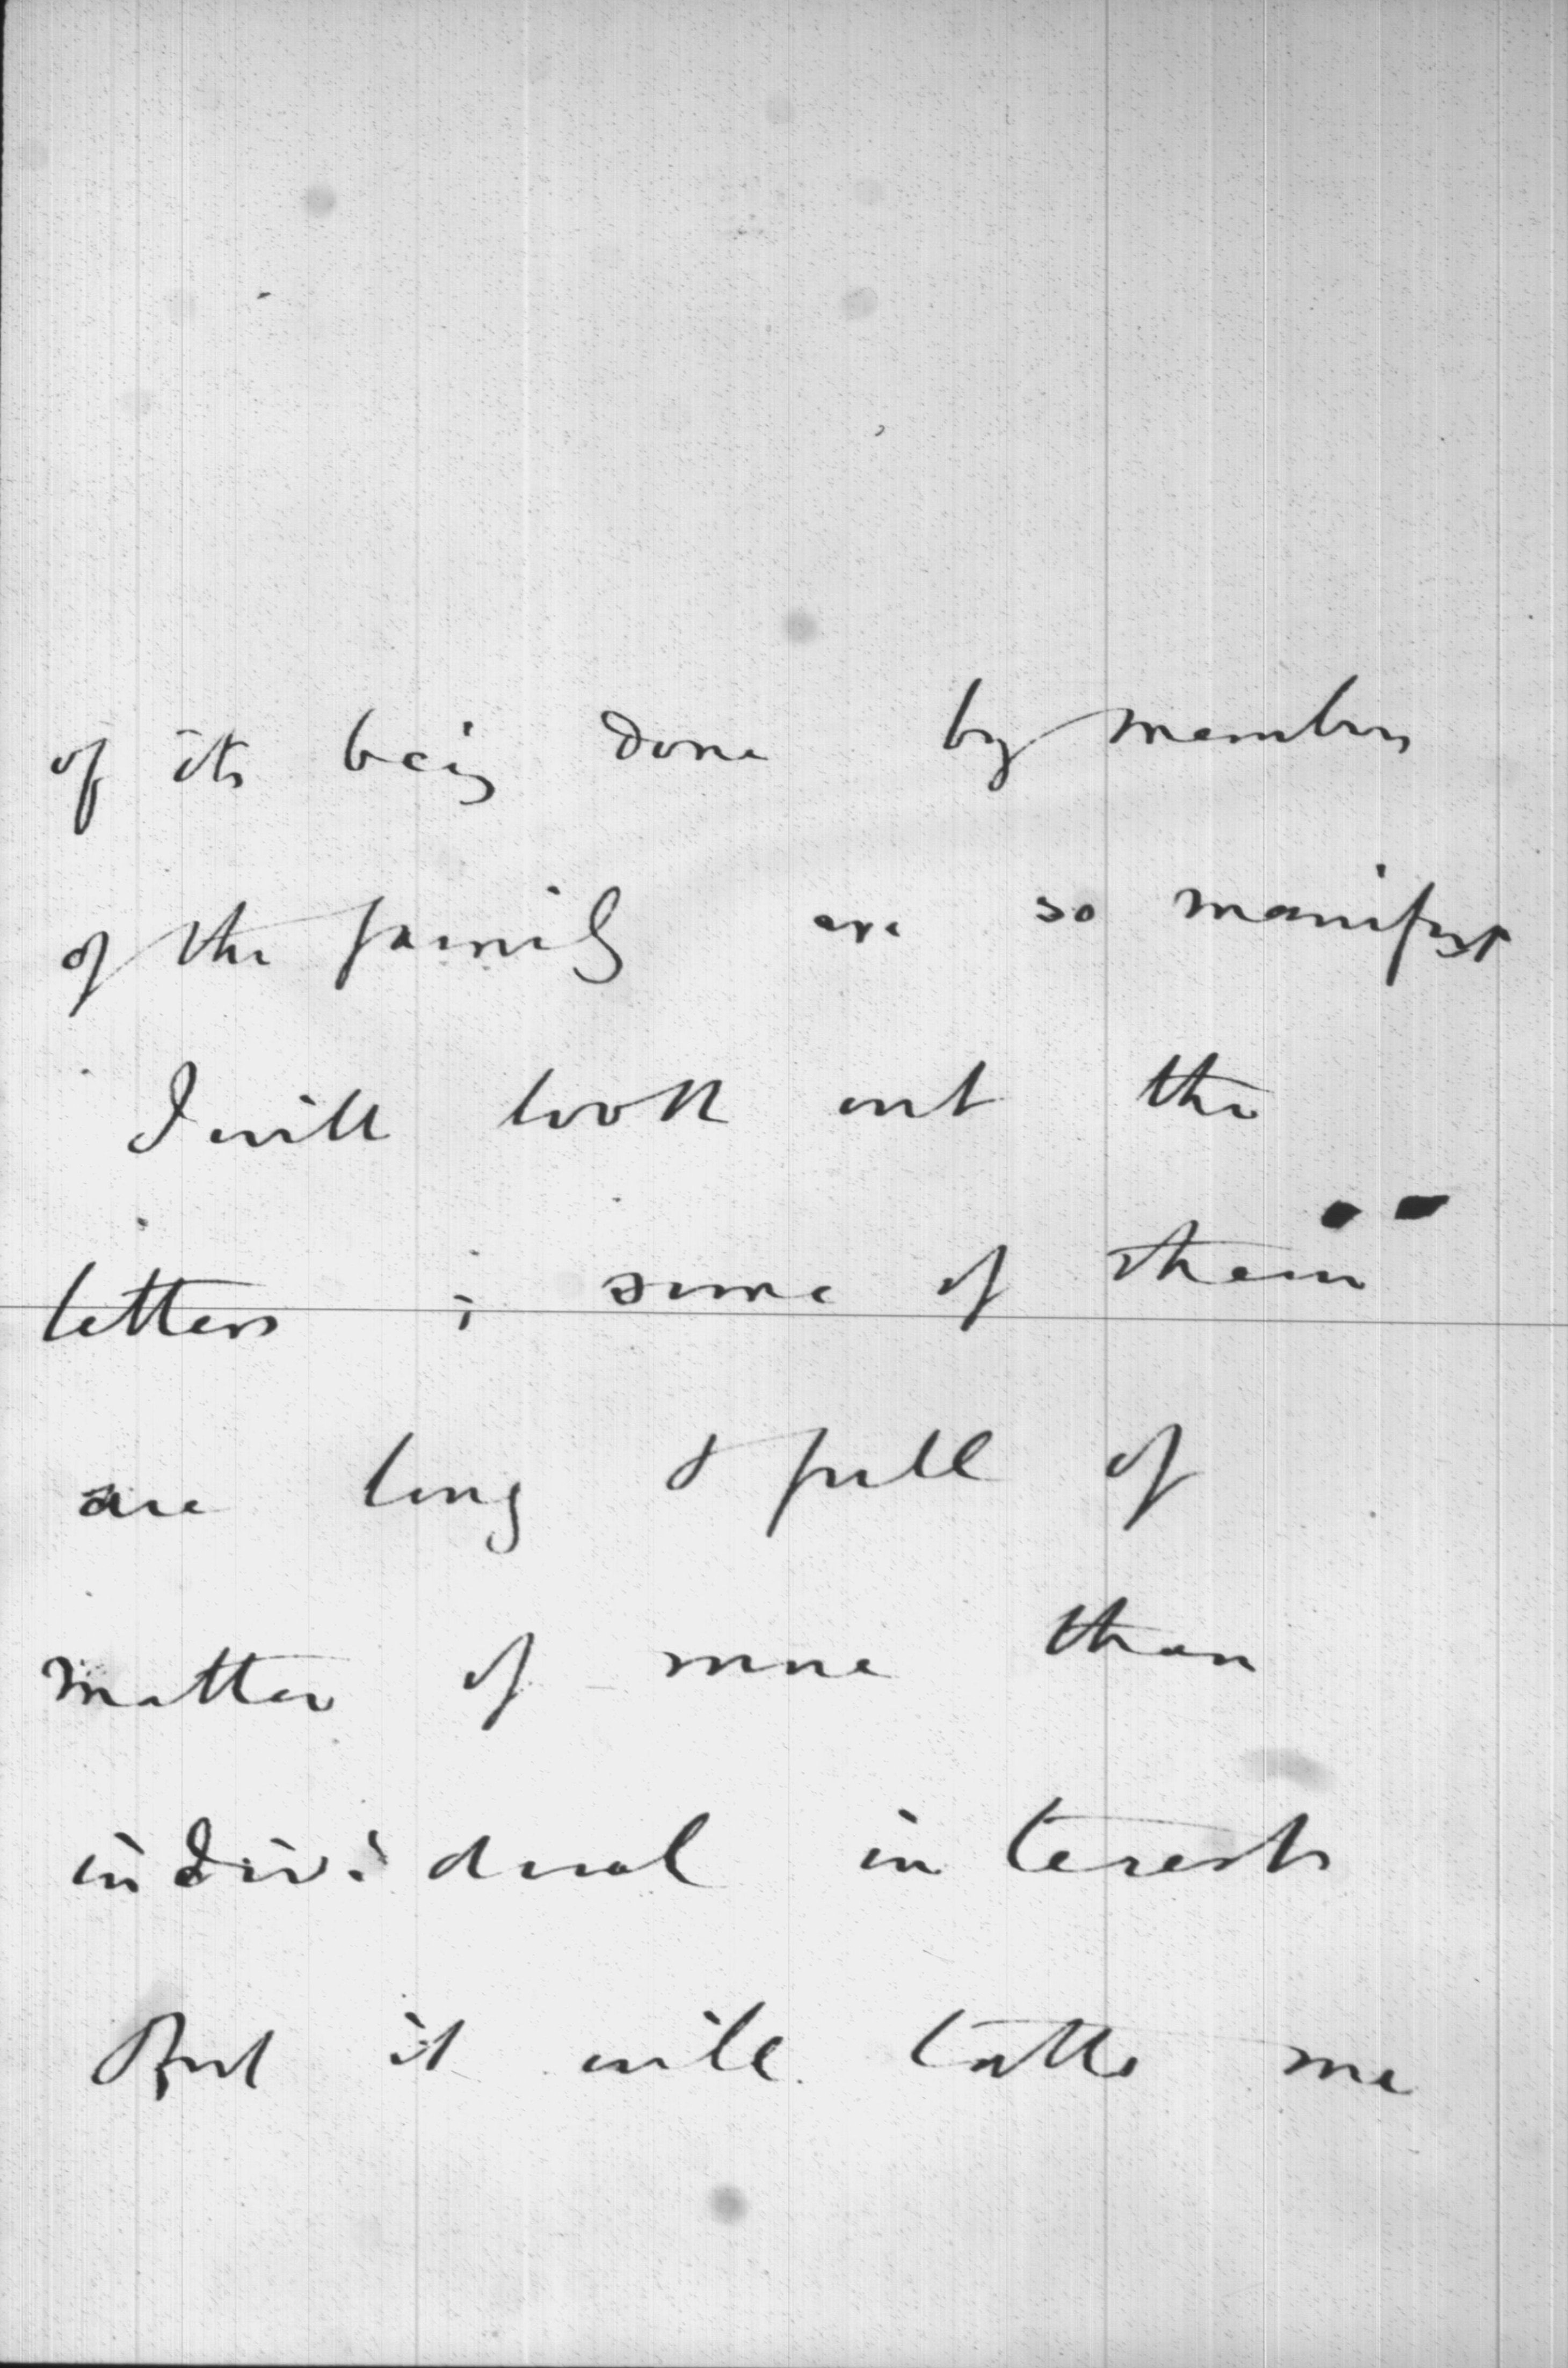 of its being done by members
of the family are so manifest
I will look out the
letters ; some of them
are long & full of
matter of more than
individual interest
But it will take me